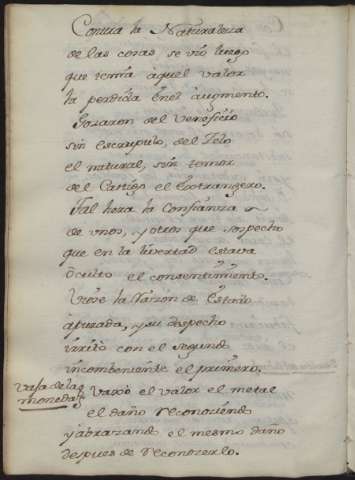 Contra la Naturaleza
de las cosas se vio luego
que tenia aquel valor
la perdida en el augmento.
Gozaron del veneficio
sin escrupulo, del Zelo
el natural, sin temor
del Castigo el extrangero.
Tal hera la Confianza
de vnos, y otros que sospecho
que en la livertad estava
oculto el consentimiento.
Viose la Razon de Estado
apurada, y su despecho
irrito con el segundo
incombeniente el primero.
vaja de las
monedas
Vaxò el valor el metal
el daño reconociendo
y abrazando el mesmo daño
despues de reconocerlo.